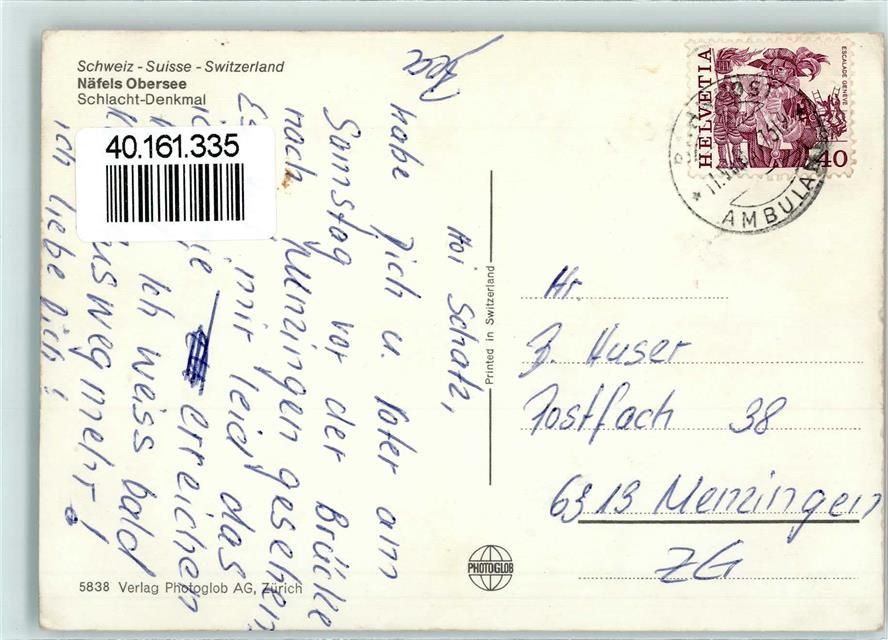 Schweiz - Suisse - Switzerland
Näfels Obersee
Schlacht-Denkmal
40.161.335
Hoi Schatz,
habe Dich u. Vater am
Samstag vor der Brücke
nach Menzingen gesehen
Es mir leid das
erreichen
Ich weiss bald
Ausweg mehr!
ich liebe Dich!
HELVETIA
ESCALADE GENÈVE
40
AMBULA
Printed in Switzerland
Hr.
B. Huser
Postfach 38
6313 Menzingen
ZG
PHOTOGLOB
5838 Verlag Photoglob AG, Zürich